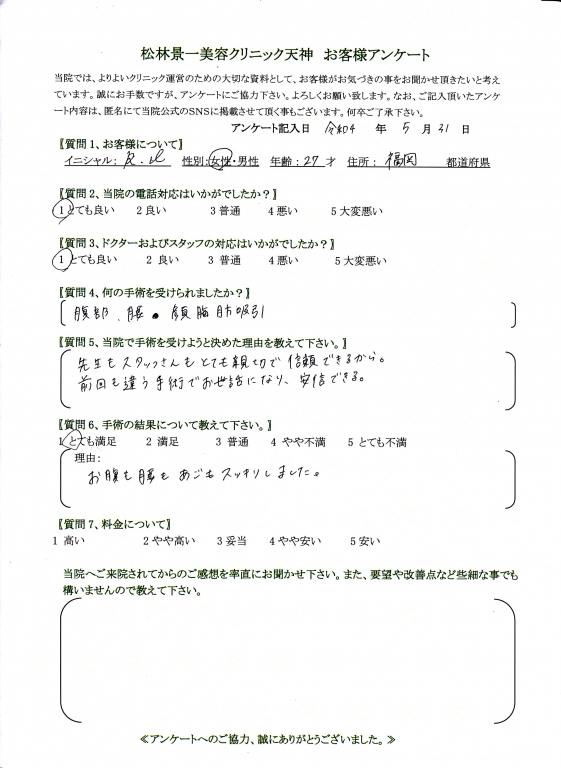 松林景一美容クリニック天神　お客様アンケート
当院では、よりよいクリニック運営のための大切な資料として、お客様がお気づきの事をお聞かせ頂きたいと考え
ています。誠にお手数ですが、アンケートにご協力下さい。よろしくお願い致します。なお、ご記入頂いたアンケ
ート内容は、匿名にて当院公式のSNSに掲載させて頂く事もございます。何卒ご了承下さい。
アンケート記入日　令和4　年　5　月　31　日
〖質問1、お客様について〗
イニシャル：　性別：女性・男性　年齢：27才　住所：　福岡　都道府県
〖質問2、当院の電話対応はいかがでしたか？〗
1とても良い　2良い　3普通　4悪い　5大変悪い
〖質問3、ドクターおよびスタッフの対応はいかがでしたか？〗
1とても良い　2 良い　3 普通　4悪い　5大変悪い
〖質問4、何の手術を受けられましたか？〗
腹部、腰・顎脂肪吸引
〖質問5、当院で手術を受けようと決めた理由を教えて下さい。〗
先生もスタッフさんもとても親切で信頼できるから。
前回も違う手術でお世話になり、安信できる。
〖質問6、手術の結果について教えて下さい。〗
1 とても満足　2 満足　3 普通　4 やや不満　5 とても不満
理由：
お腹も腰もあごもスッキリしました。
〖質問7、料金について〗
1 高い　2やや高い　3妥当　4やや安い　5安い
当院へご来院されてからのご感想を率直にお聞かせ下さい。また、要望や改善点など些細な事でも
構いませんので教えて下さい。
≪アンケートへのご協力、誠にありがとうございました。≫